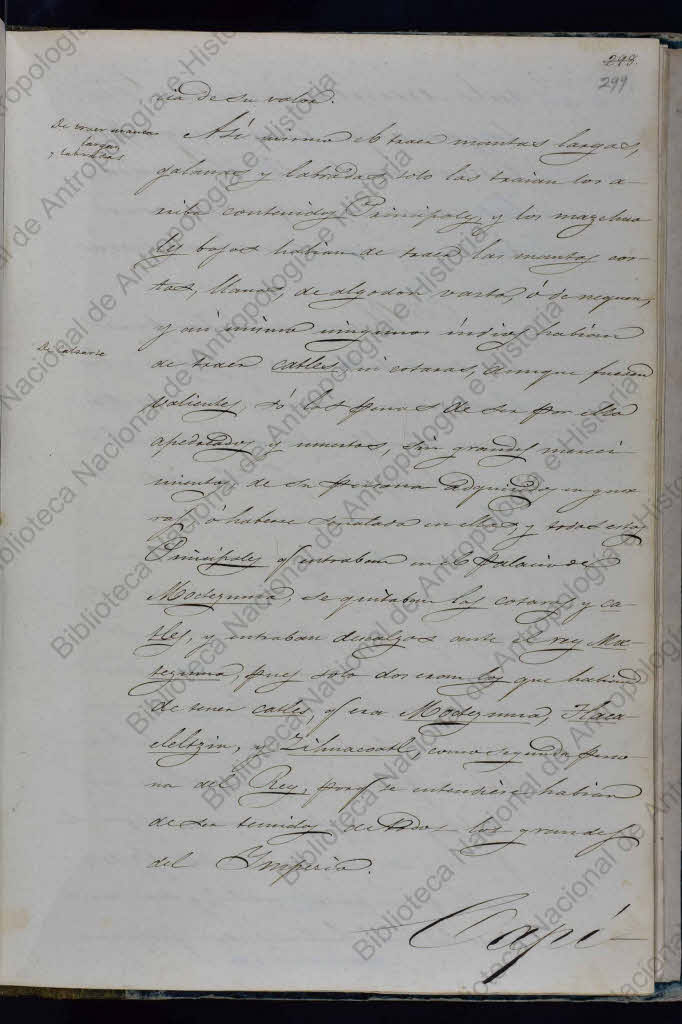 298.
299
cia de su valor.
De traer mantas
largas
y labradas
Asi mismo el traer mantas largas,
galanas y labradas, solo las traian los a-
rriba contenidos Principales, y los mazehua
les bajos habian de traer las mantas cor-
tas, llanas, de algodon vasto, ó de nequen,
y asi mismo ningunos indios habian
De calzarse
de traer catles, ni cotaras, aunque fuesen
valientes, só las penas de ser por ello
apedreados y muertos, sin grandes mereci-
mientos de su persona adquiridos en guer
ras, ó haberse señalado en ellas, y todos estos
Principales q. entraban en el Palacio de
Moctezuma, se quitaban las cotaras y ca-
tles, y entraban descalzos ante el rey Moc-
tezuma, pues solo dos eran los que habian
de tener catles, q. era Moctezuma, Tlaca-
eleltzin, y Zihuacoatl, como segunda perso-
na del Rey, porq. se entendiese habian
de ser temidos de todos los grandes
del Imperio.
Capí-
Biblioteca Nacional de Antropología e Historia